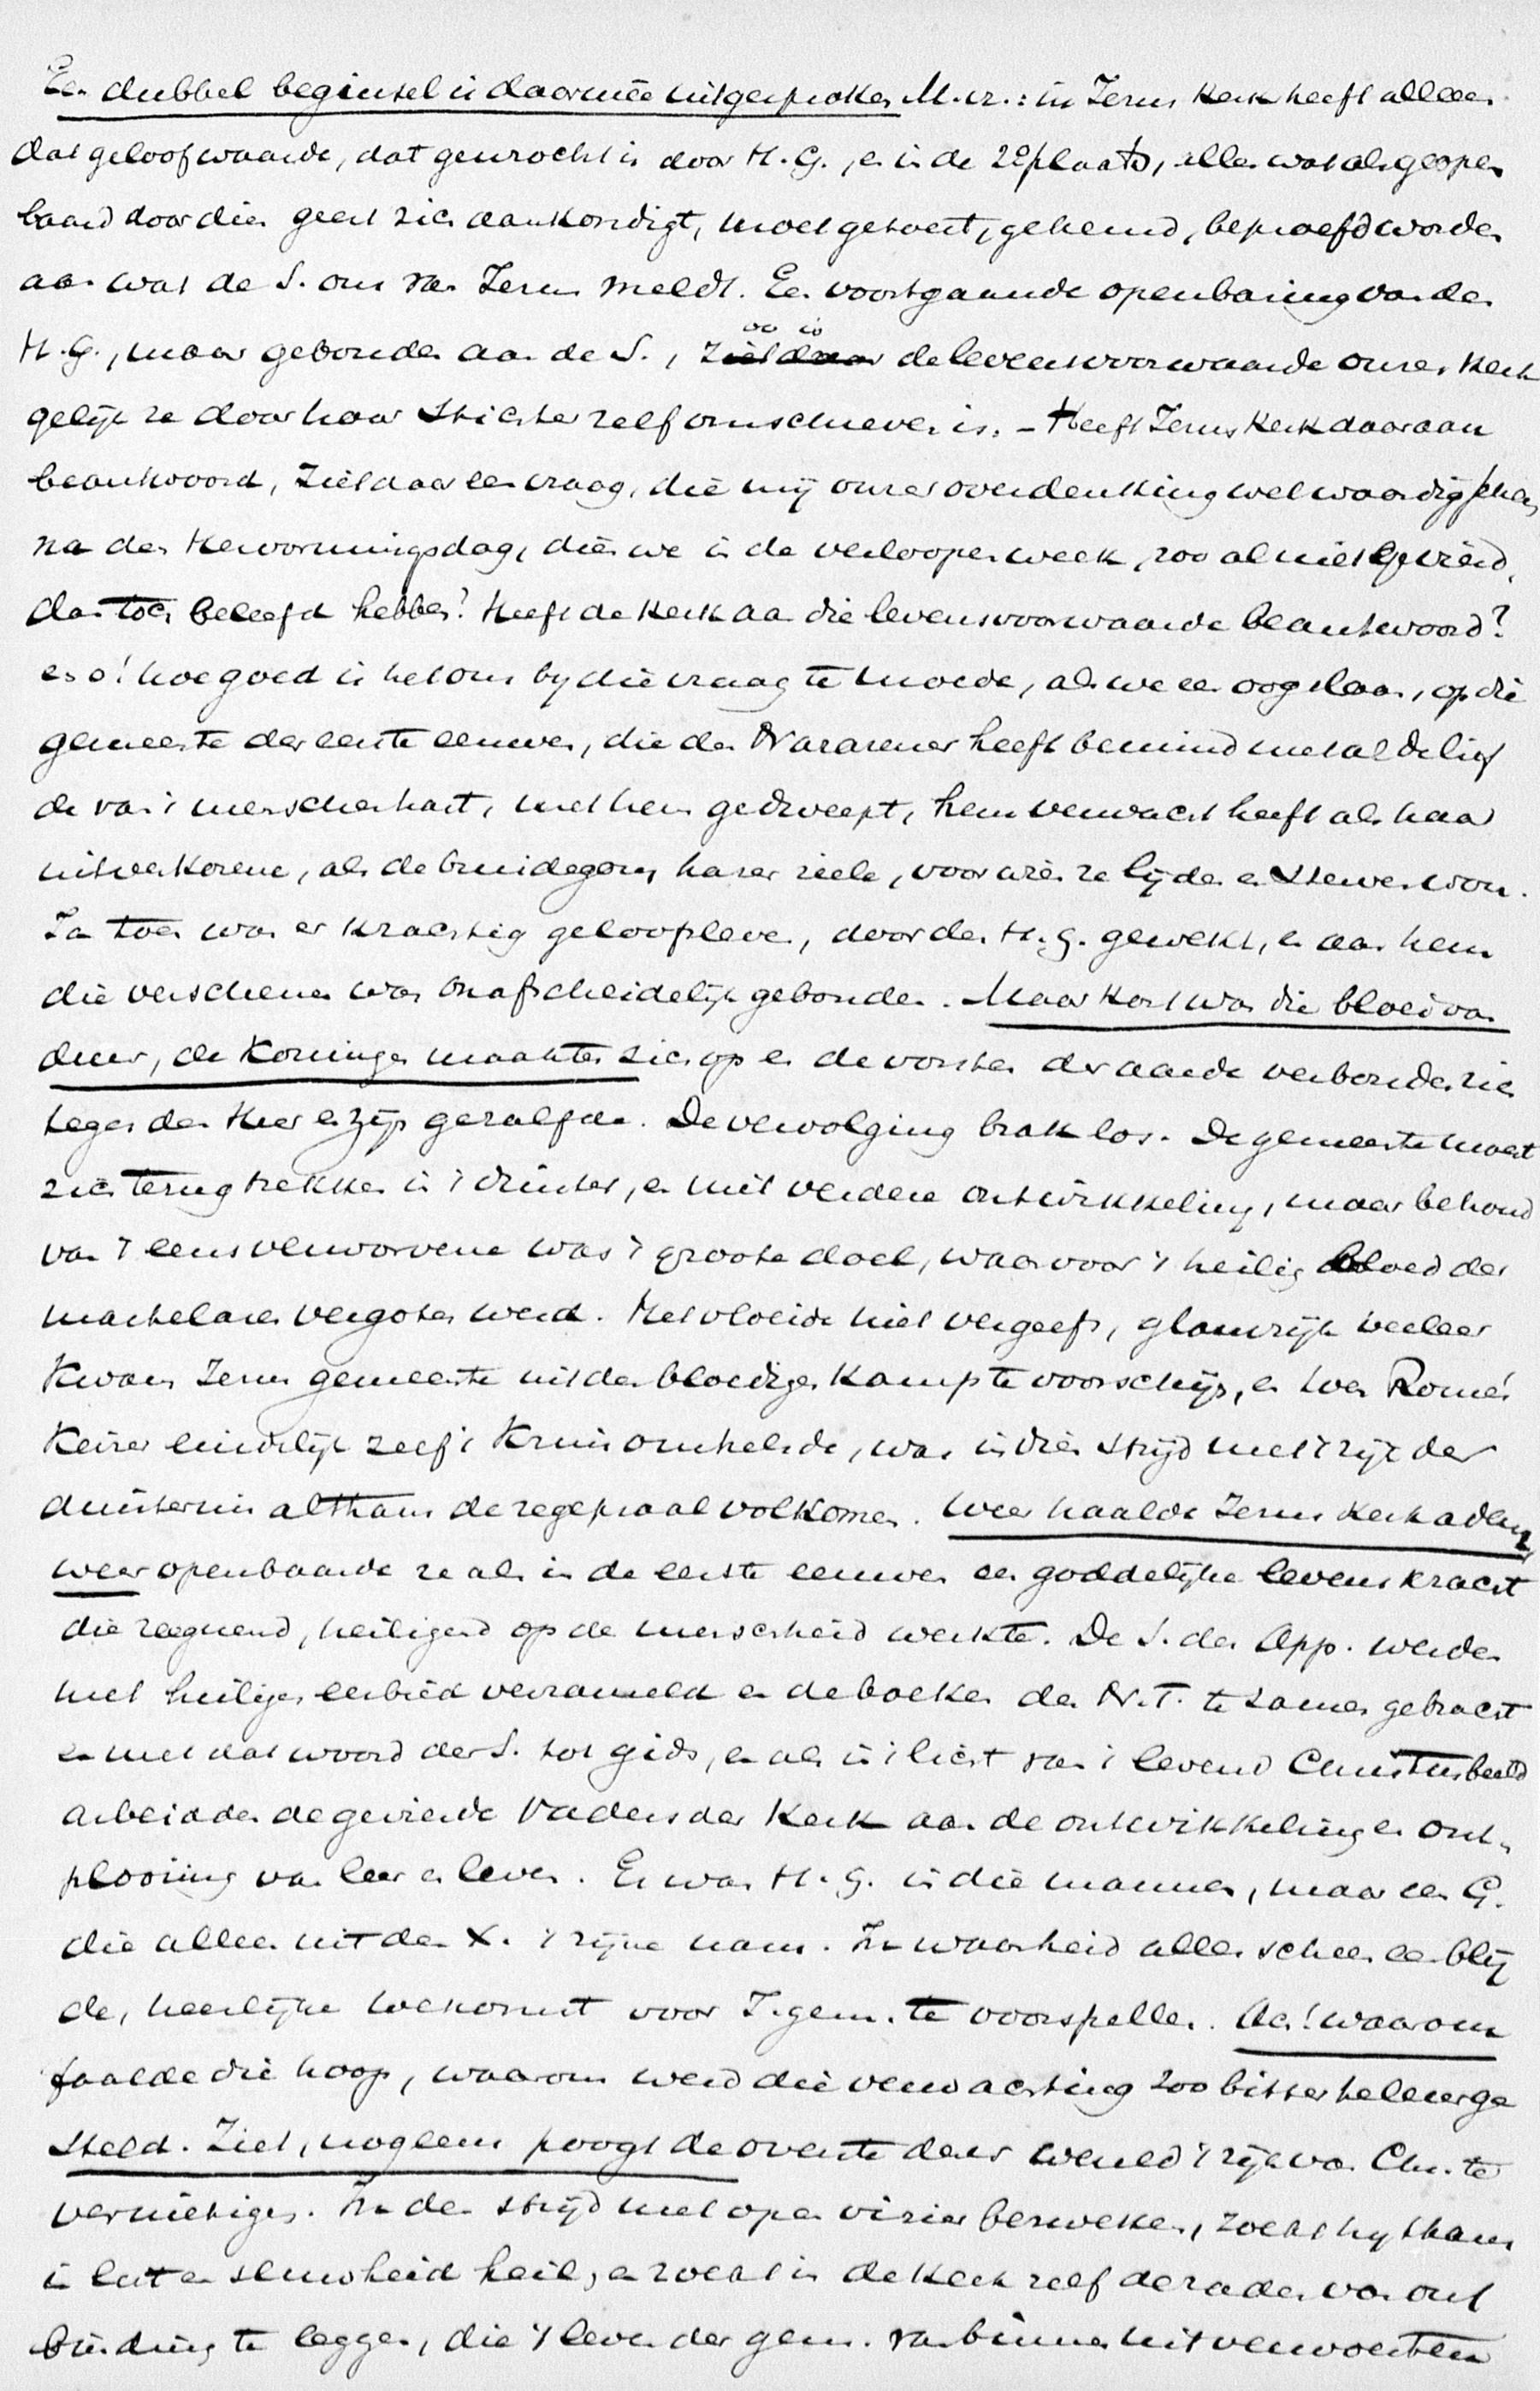 Een dubbel beginsel is daarmeê uitgesproken M. vr.: in Jezus Kerk heeft alleen
dat geloof waarde, dat gewrocht is door H. G., en in de 2e plaats, alles wat als geopen
baard door dien geest zich aankondigt, moet getoetst, gekend, beproefd worden
aan wat de S. ons van Jezus meldt. Een voortgaande openbaring van den
H. G., maar gebonden aan de S., zoo is de levensvoorwaarde onzer Kerk
gelijk ze door haar Stichter zelf omschreven is. – Heeft Jezus Kerk daaraan
beantwoord, Ziet daar een vraag, die mij onzer overdenking wel waardig scheen
na den Hervormingsdag, dien we in de verloopen week, zoo al niet gevierd,
dan toch beleefd hebben? Heeft de Kerk aan die levensvoorwaarde beantwoord?
en o! hoe goed is het ons by die vraag te moede, als we een oog slaan, op die
gemeente der eerste eeuwen, die den Nazarener heeft bemind met al de lief
de van 't menschenhart, met hem gedweept, hem verwacht heeft als haar
uitverkorene, als de bruidegom harer ziele, voor wien ze lijden en sterven wou.
Ja toen was er krachtig geloofsleven, door den H. G. gewekt, en aan hem
die verschenen was onafscheidelijk gebonden. Maar kort was die bloei van
duur, de Koningen maakten zich op en de vorsten der aarde verbonden zich
tegen den Heer en zijn gezalfde. De vervolging brak los. De gemeente moest
zich terugtrekken in 't duister, en niet verdere ontwikkeling, maar behoud
van 't eens verworvene was 't groote doel, waarvoor 't heilig bloed der
martelaren vergoten werd. Het vloeide niet vergeefs, glansrijk veeleer
kwam Jezus gemeente uit den bloedigen kamp te voorschijn, en toen Rome's
Keizer eindelijk zelf 't Kruis omhelsde, was in dien strijd met 't rijk der
duisternis althans de zegepraal volkomen. Weer haalde Jezus Kerk adem,
weer openbaarde ze als in de eerste eeuwen een goddelijke levenskracht
die zegenend, heiligend op de menschheid werkte. De S. der App. werden
met heiligen eerbied verzameld en de boeken des N. T. te zamen gebracht
en met dat woord der S. tot gids, en als in 't licht van 't levend Christusbeeld
arbeidden de gevierde Vaders der Kerk aan de ontwikkeling en ont-
plooiing van leer en leven. Er was H. G. in die mannen, maar een G.
die alleen uit den X. 't zijne nam. In waarheid alles scheen een blij
de, heerlijke toekomst voor J. gem. te voorspellen. Ach! waarom
faalde die hoop, waarom werd die verwachting zoo bitter teleurge
steld. Ziet, nog eens poogt de overste dezer wereld 't rijk van Chr. te
vernietigen. In den strijd met open vizier bezweken, zoekt hy thans
in list en sluwheid heil, en zoekt in de Kerk zelf de zaden van ont
binding te leggen, die 't leven der gem. van binnen uit verwoesten